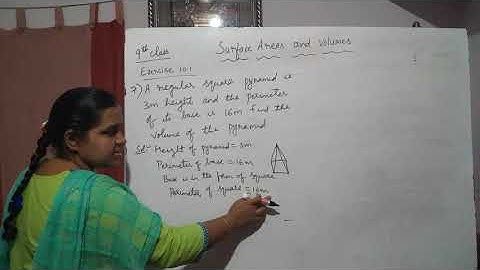 9th class
Surface Areas and volumes
Exercise 10.1
7) A regular square pyramid is
3m height and the perimeter
of its base is 16m find the
volume of the pyramid
Sol:- Height of pyramid = 3m
Perimeter of base = 16m
Base is in the form of square
Perimeter of square = 16m